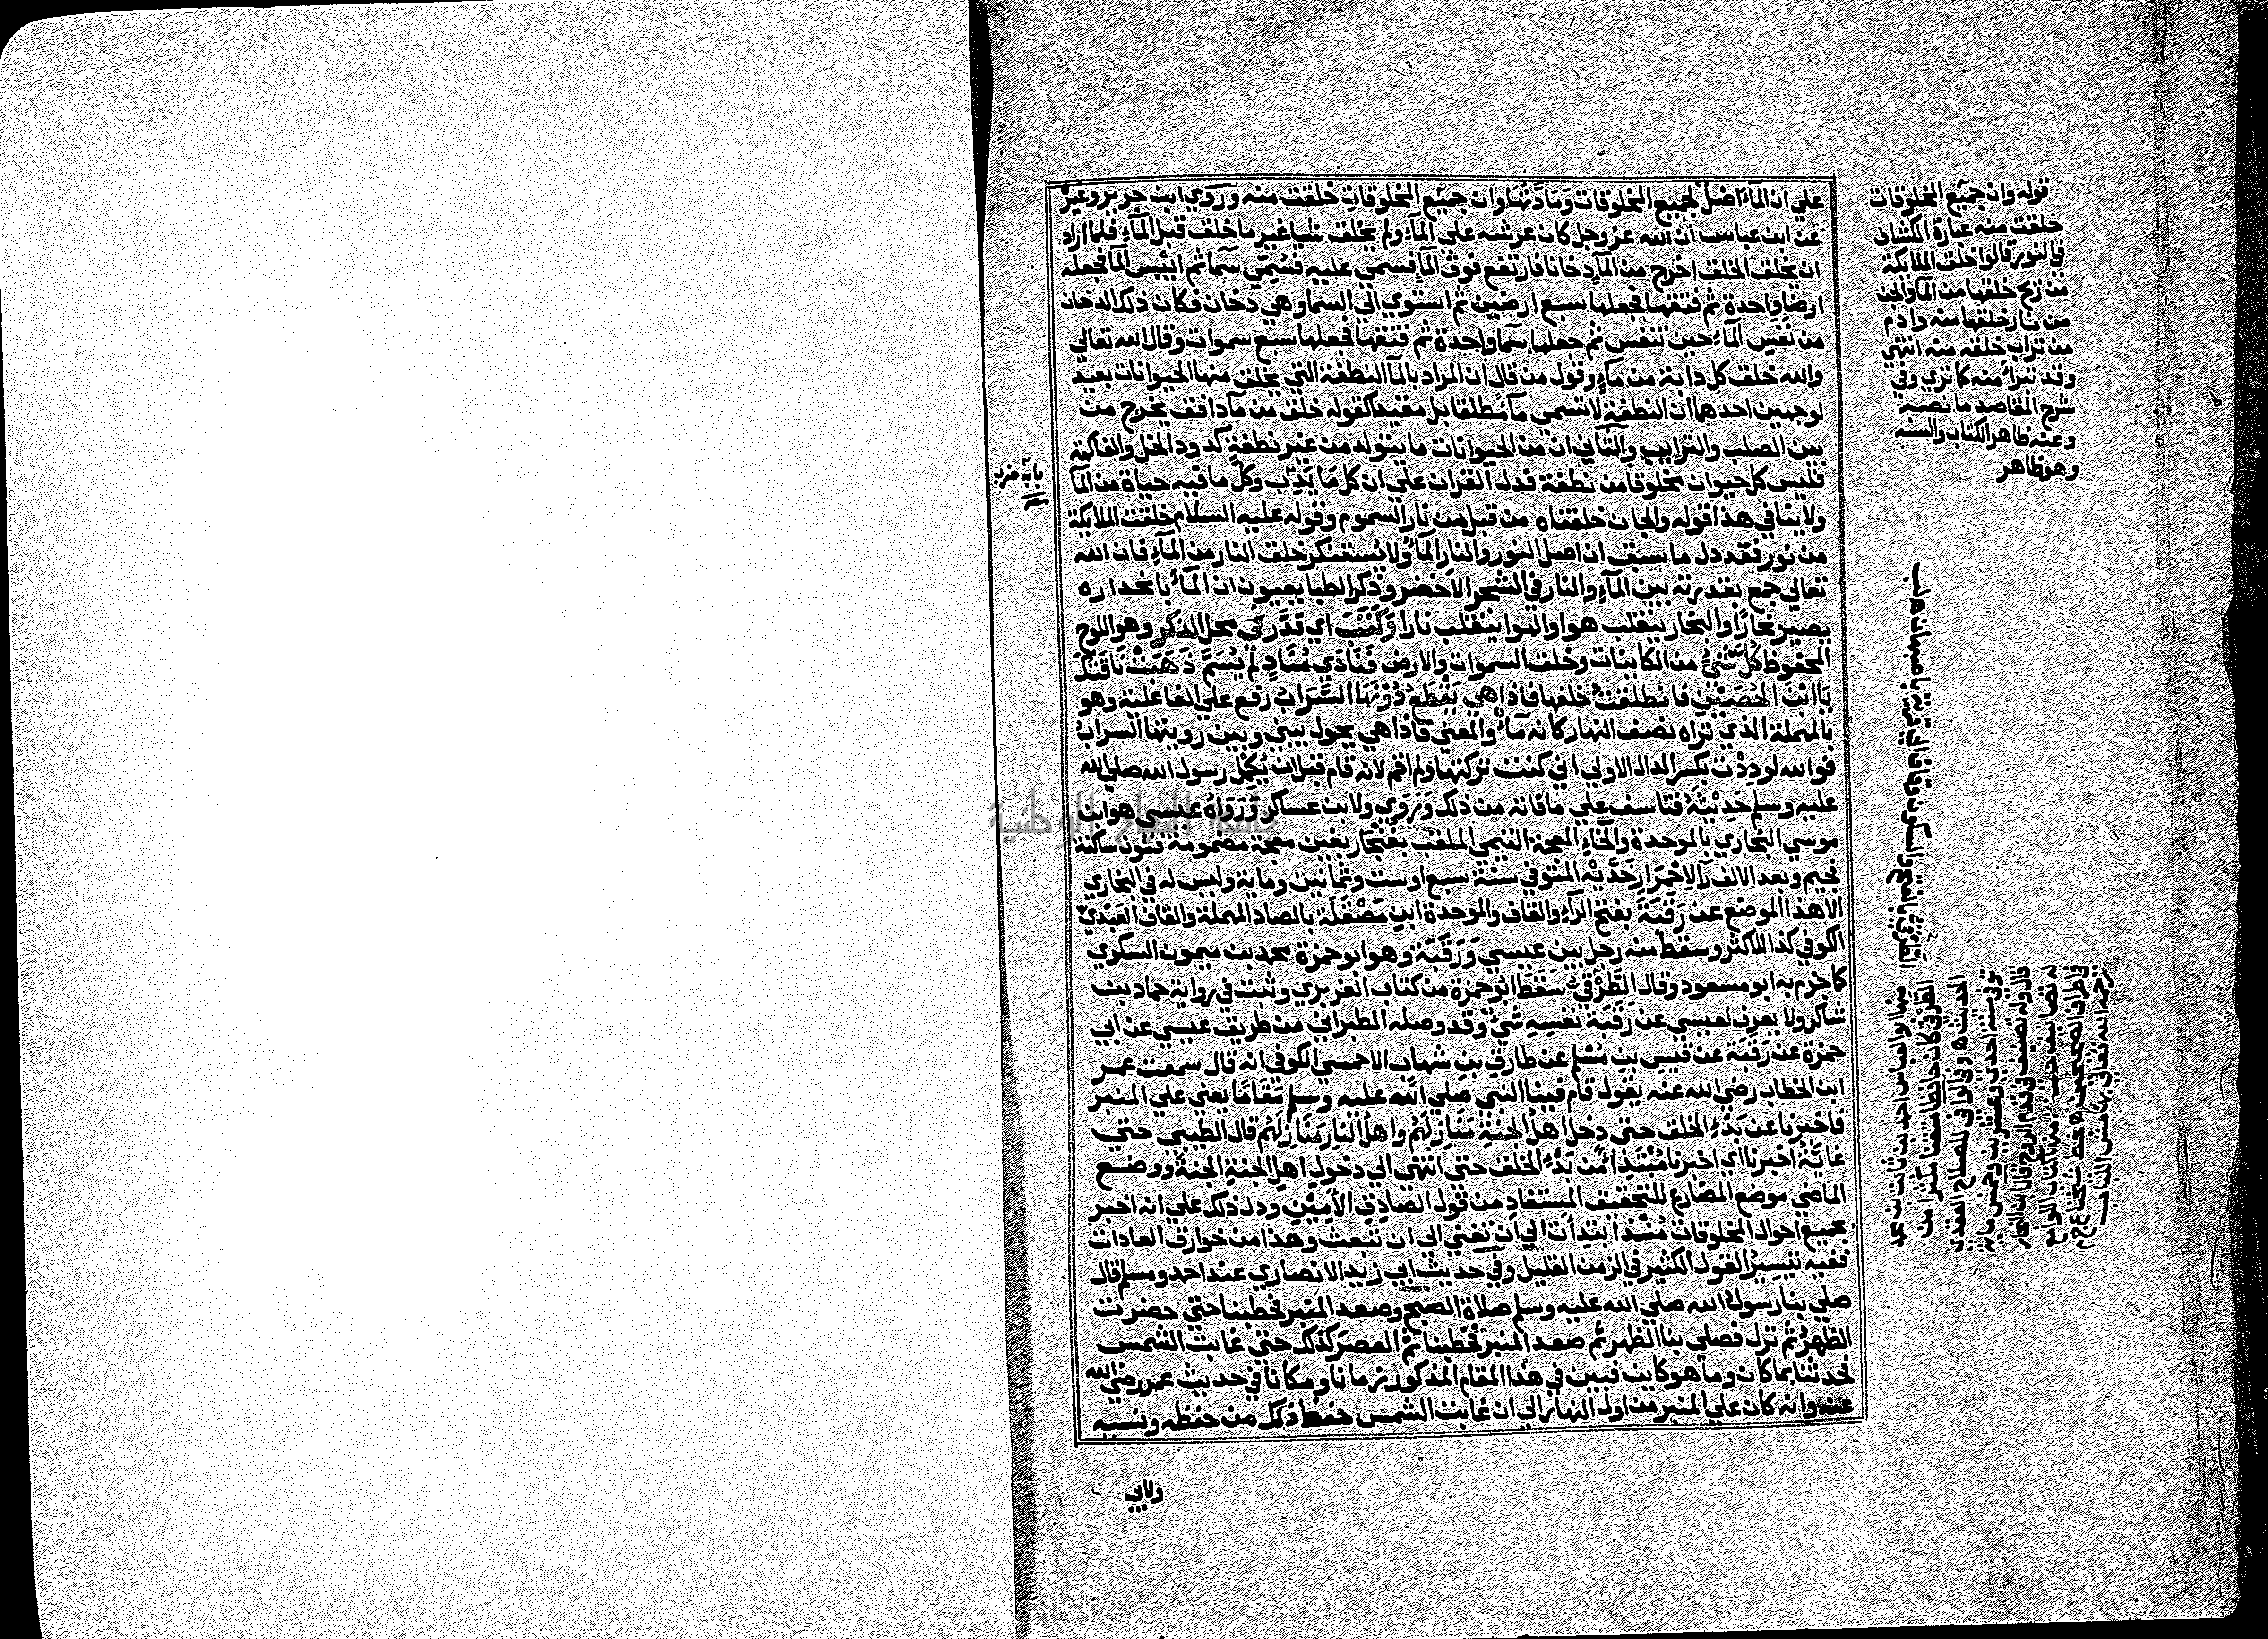 علي ان المآء اصل لجميع المخلوقات ومادتها وان جميع المخلوقات خلقت منه وروي ابن جرير وغيره
عن ابن عباس ان الله عز وجل كان عرشه علي المآء ولم يخلق شيا غير ما خلق قبل المآء فلما اراد
ان يخلق الخلق اخرج من المآء دخانا فارتفع فوق المآء فسمي عليه فسمي سمآ ثم ايبس المآ فجعله
ارضا واحدة ثم فتقها فجعلها سبع ارضين ثم استوي الي السما وهي دخان فكان ذلك الدخان
من نفس المآء حين تنفس ثم جعلها سمآ واحدة ثم فتقها فجعلها سبع سموات وقال الله تعالي
والله خلق كل دابة من مآء وقول من قال ان المراد بالمآ النطفة التي يخلق منها الحيوانات بعيد
لوجهين احدهما ان النطفة لا تسمي مآء مطلقا بل مقيدا كقوله خلق من مآ دافق يخرج من
بين الصلب والترايب والثاني ان من الحيوانات ما يتولد من غير نطفة كدود الخل والفاكهة
فليس كل حيوان مخلوقا من نطفة فدل القران علي ان كل ما يدب وكل ما فيه حياة من المآ
ولا ينافي هذا قوله والجان خلقناه من قبل من نار السموم وقوله عليه السلام خلقت الملايكة
من نور فقد دل ما سبق ان اصل النور والنار المآء ولا يستنكر خلق النار من المآء فان الله
تعالي جمع بقدرته بين المآء والنار في الشجر الاخضر وذكر الطبايعيون ان المآء بانحداره
يصير بخارا والبخار ينقلب هوا والهوا ينقلب نارا وكتب اي قدر في محل الذكر وهو اللوح
المحفوظ كل شيء من الكاينات وخلق السموات والارض فنادي مناد لم يسم ذهبت ناقتك
يا ابن الحصين فانطلقت خلفها فاذا هي يقطع دونها السراب رفع علي الفاعلية وهو
بالمهملة الذي تراه نصف النهار كانه مآء والمعني فاذا هي يحول بيني وبين رويتها السراب
فوالله لوددت بكسر الدال الاولي اني كنت تركتها ولم اقم لانه قام قبل ان يكمل رسول الله صلي الله
عليه وسلم حديثه فتاسف علي ما فاته من ذلك وروي ولابن عساكر ورواه عيسي هو ابن
موسي البخاري بالموحدة والخاء المعجمة التيمي الملقب بغنجار بغين معجمة مضمومة فنون ساكنة
فجيم وبعد الالف رآ لاحمرار خديه المتوفي سنة سبع او ست وثمانين وماية وليس له في البخاري
الا هذا الموضع عن رقبة بفتح الرآء والقاف والموحدة ابن مصقلة بالصاد المهملة والقاف العبدي
الكوفي كذا للاكثر وسقط منه رجل بين عيسي ورقبة وهو ابو حمزة محمد بن ميمون السكري
كما جزم به ابو مسعود وقال الطرقي سقط ابو حمزة من كتاب الفربري وثبت في رواية حماد بن
شاكر ولا يعرف لعيسي عن رقبة نفسه شيء وقد وصله الطبراني من طريق عيسي عن ابي
حمزة عن رقبة عن قيس بن مسلم عن طارق بن شهاب الاحمسي الكوفي انه قال سمعت عمر
ابن الخطاب رضي الله عنه يقول قام فينا النبي صلي الله عليه وسلم مقاما يعني علي المنبر
فاخبرنا عن بدء الخلق حتي دخل اهل الجنة منازلهم واهل النار منازلهم قال الطيبي حتي
غاية اخبرنا اي اخبرنا مبتديا من بدء الخلق حتي انتهي الي دخول اهل الجنة الجنة ووضع
الماضي موضع المضارع للتحقيق المستفاد من قول الصادق الامين ودل ذلك علي انه اخبر
بجميع احوال المخلوقات منذ ابتدأت الي ان تفني الي ان تبعث وهذا من خوارق العادات
ففيه تيسير القول الكثير في الزمن القليل وفي حديث ابي زيد الانصاري عند احمد ومسلم قال
صلي بنا رسول الله صلي الله عليه وسلم صلاة الصبح وصعد المنبر فخطبنا حتي حضرت
الظهر ثم نزل فصلي بنا الظهر ثم صعد المنبر فخطبنا ثم العصر كذلك حتي غابت الشمس
فحدثنا بما كان وما هو كاين فبين في هذا المقام المذكور زمانا ومكانا في حديث عمر رضي الله
عنه وانه كان علي المنبر من اول النهار الي ان غابت الشمس حفظ ذلك من حفظه ونسيه
ولابي
قوله وان جميع المخلوقات
خلقت منه عبارة الكشاف
في النور قالوا خلق الملايكة
من ريح خلقها من المآ والجن
من نار خلقها منه وادم
من تراب خلقه منه انتهي
وقد تبرأ منه كما تري وفي
شرح المقاصد ما نصه
وعند ظاهر الكتاب والسنه
وهو ظاهر
منها ابو العباس احمد بن ثابت بن محمد
الطرقي كان حافظا متقنا مكثرا من
الحديث وفي الوافي للصلاح الصفدي
توفي سنة احدي وعشرين وخمس ماية